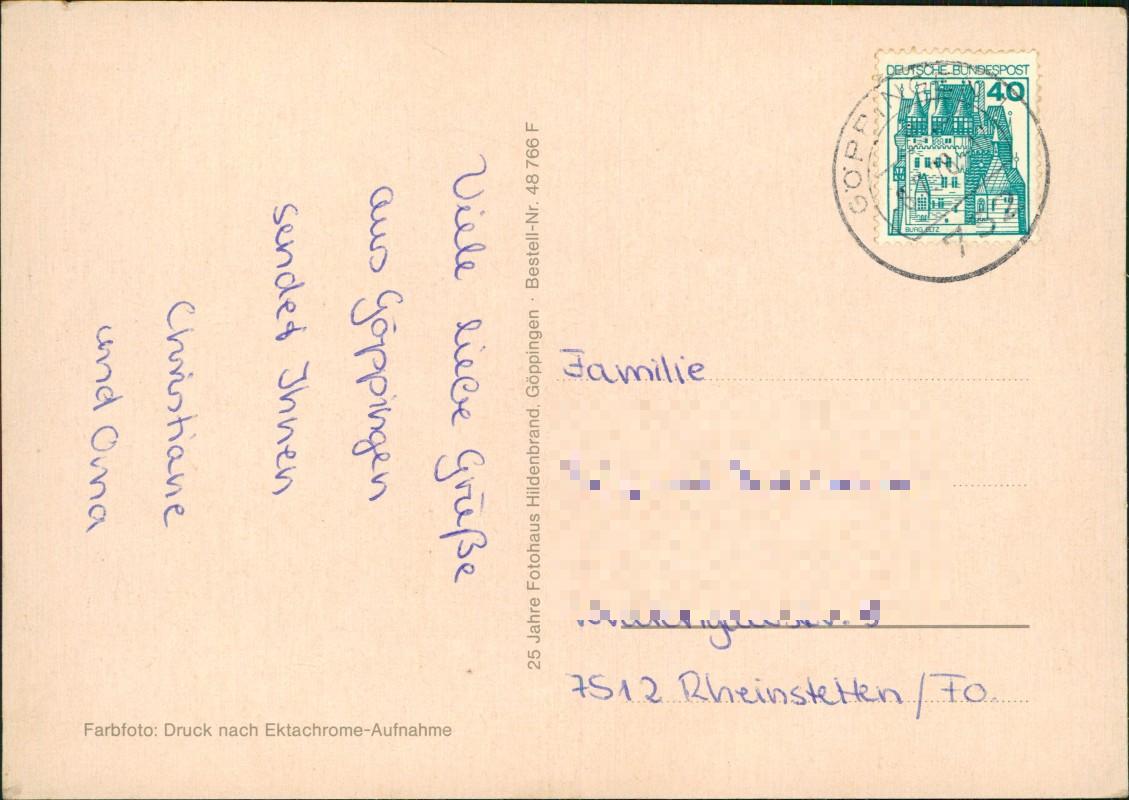 Viele liebe Grüße
aus Göppingen
sendet Ihnen
Christiane
und Oma
Farbfoto: Druck nach Ektachrome-Aufnahme
25 Jahre Fotohaus Hildenbrand, Göppingen · Bestell-Nr. 48 766 F
DEUTSCHE BUNDESPOST
40
BURG ELTZ
GÖPPINGEN
732
Familie
7512 Rheinstetten / Fo.